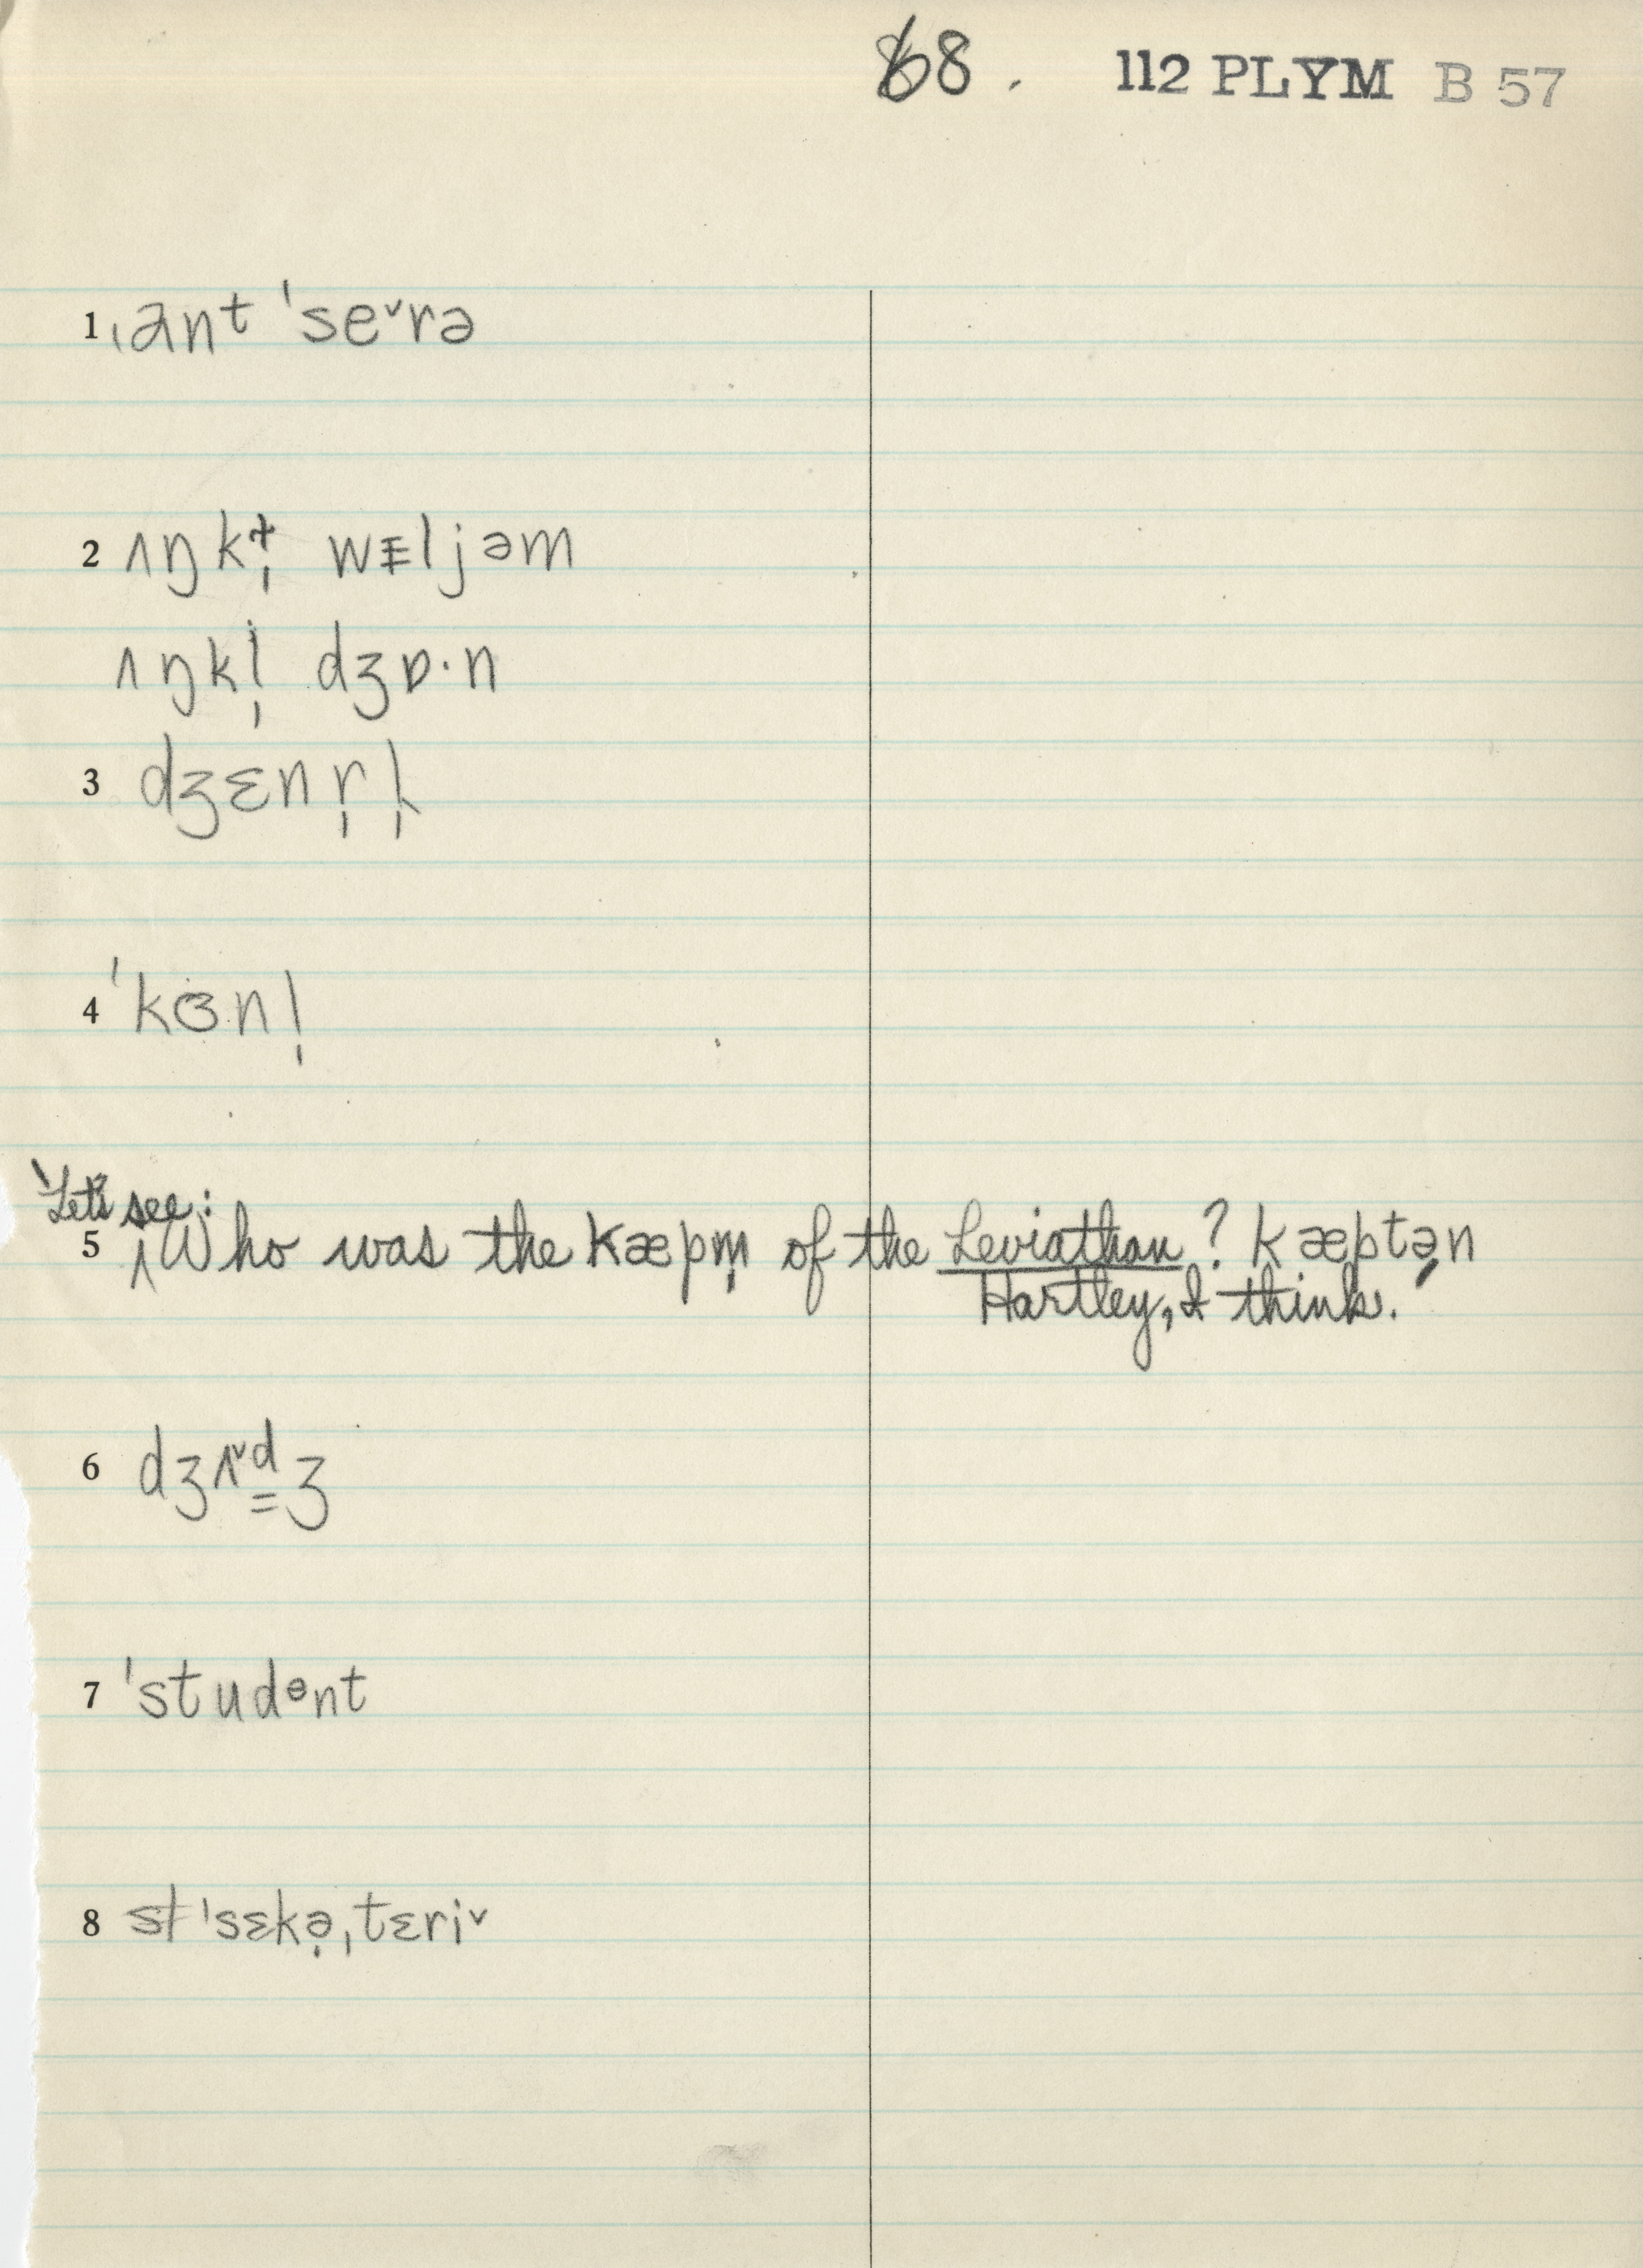 68. 112 PLYM B 57
1 ˌant ˈseˇrə
2 ʌŋkɫ̩ wɪljəm
ʌŋkl̩ dʒɒ·n
3 dʒɛnr̩l̩
4 ˈkɞnl̩
Let's see:
5 Who was the kæpm̩ of the Leviathan? kæptən
Hartley, I think.
6 dʒʌˇd̳ʒ
7 ˈstudᵊnt
8 ˈsɛkə̣ˌtɛriˇ